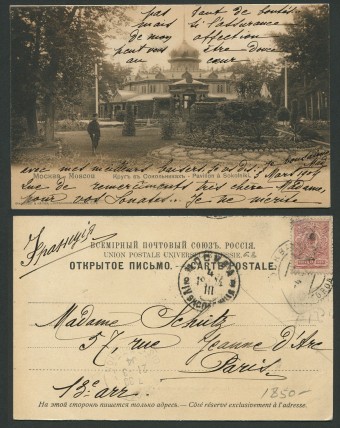 pas tant de bontés
mais si l'assurance
de mon affection
peut être douce
au cœur
Москва - Moscou Кругъ въ Сокольникахъ - Pavillon à Sokolniki.
3 Mars 1904
avec mes meilleurs baisers
que de remerciements très chère Madame,
pour vos Je ne mérite
Франція
ВСЕМІРНЫЙ ПОЧТОВЫЙ СОЮЗЪ. РОССІЯ.
UNION POSTALE UNIVERSELLE. RUSSIE.
ОТКРЫТОЕ ПИСЬМО. — CARTE POSTALE.
МОСКВА
III
Madame Schultz
57, rue Jeanne d'Arc
Paris
13e arr.
1850-
На этой сторонѣ пишется только адресъ. — Côté réservé exclusivement à l'adresse.